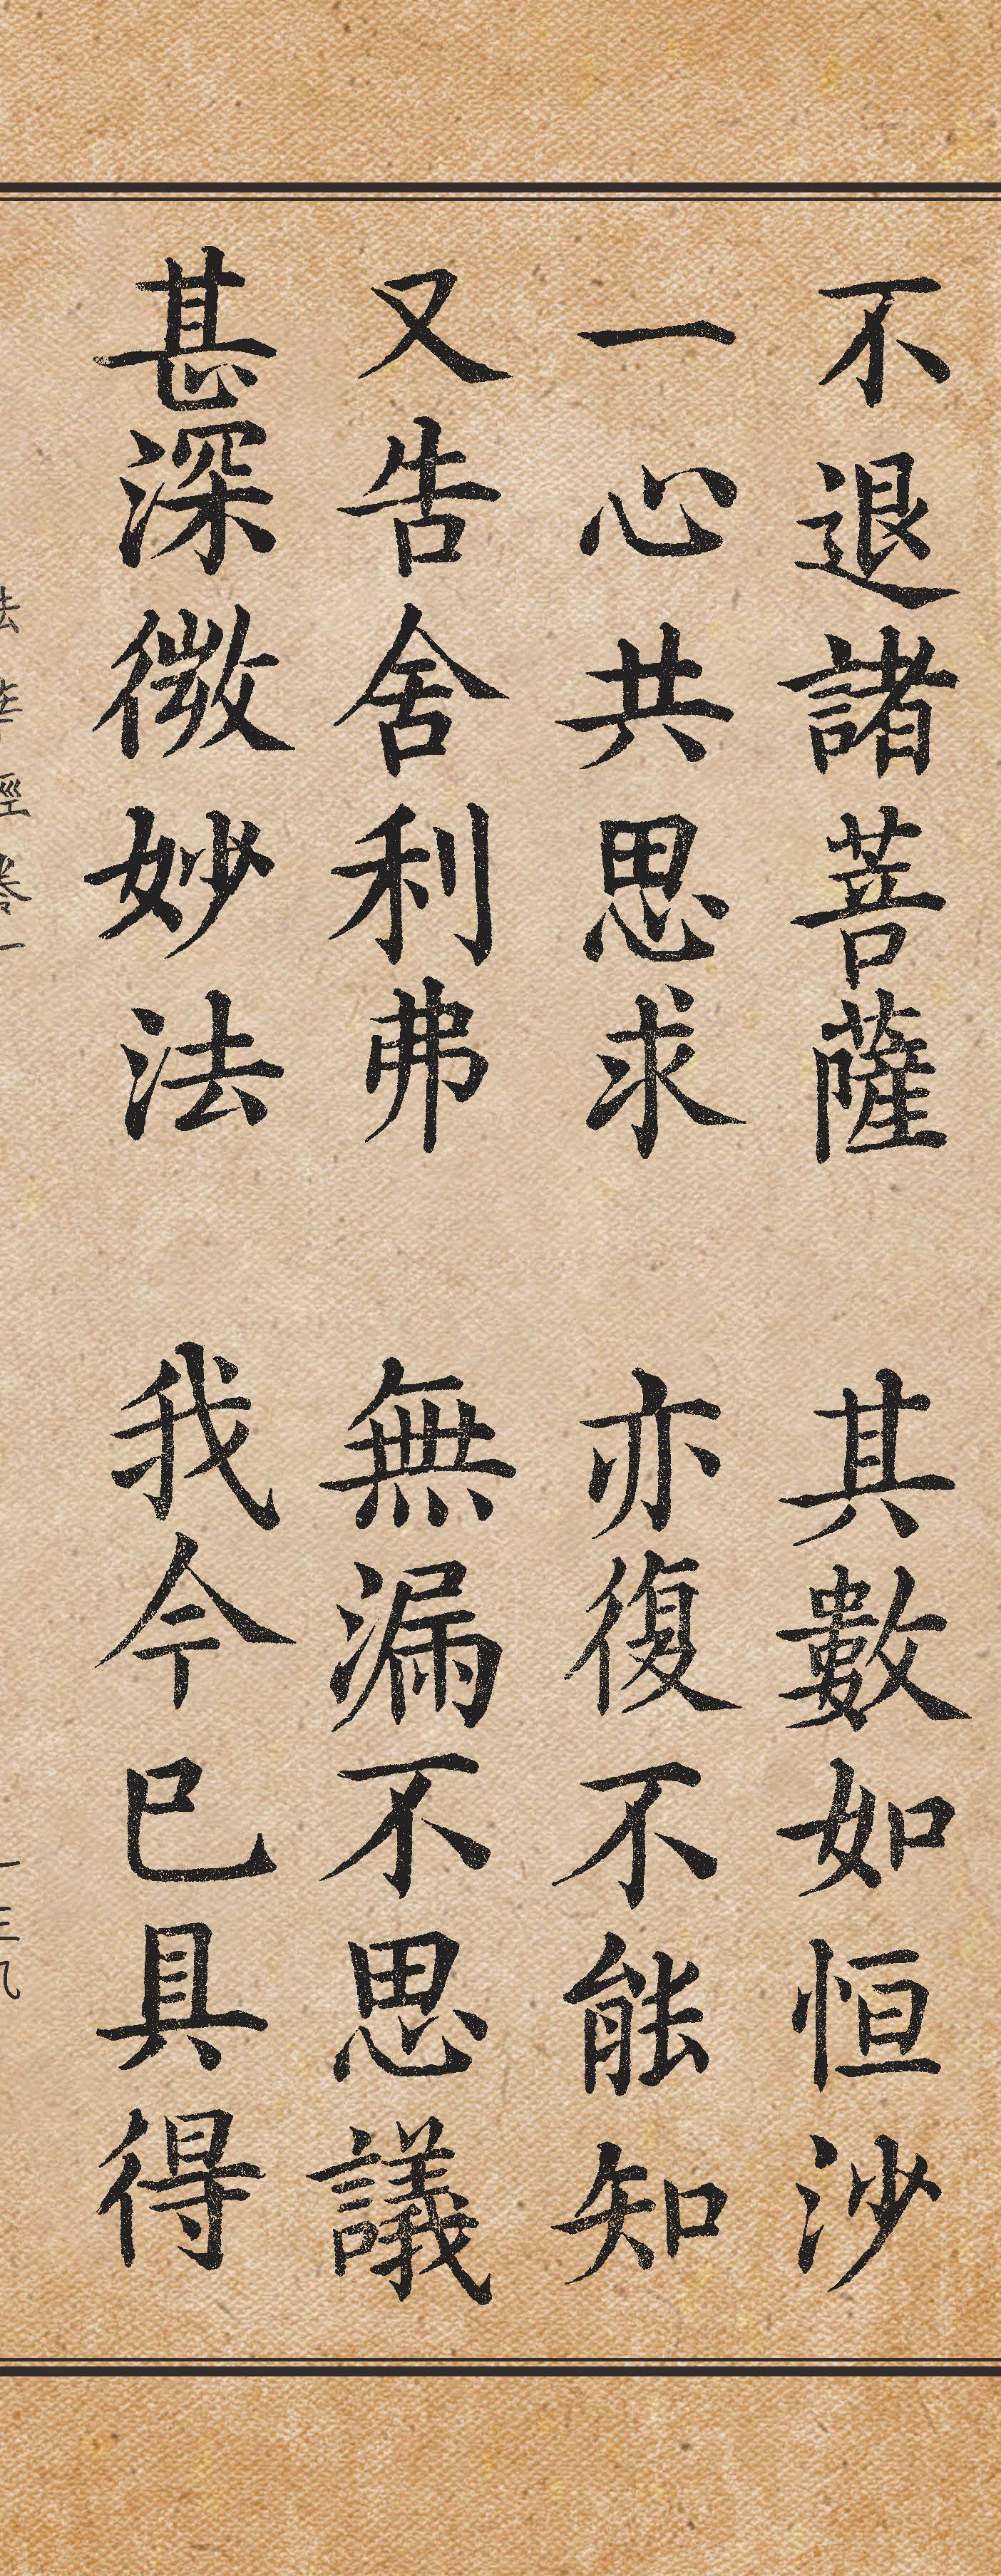 不退諸菩薩 其數如恒沙
一心共思求 亦復不能知
又告舍利弗 無漏不思議
甚深微妙法 我今已具得
法華經卷一 一三九